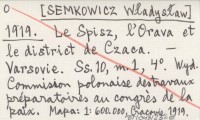 O [SEMKOWICZ Władysław]
1919. Le Spisz, l'Orava et
le district de Czaca. —
Varsovie. Ss. 10, m. 1, 4°. Wyd.
Commission polonaise des travaux
préparatoires au congrès de la
paix. Mapa: 1:600.000, Cracovie, 1919.